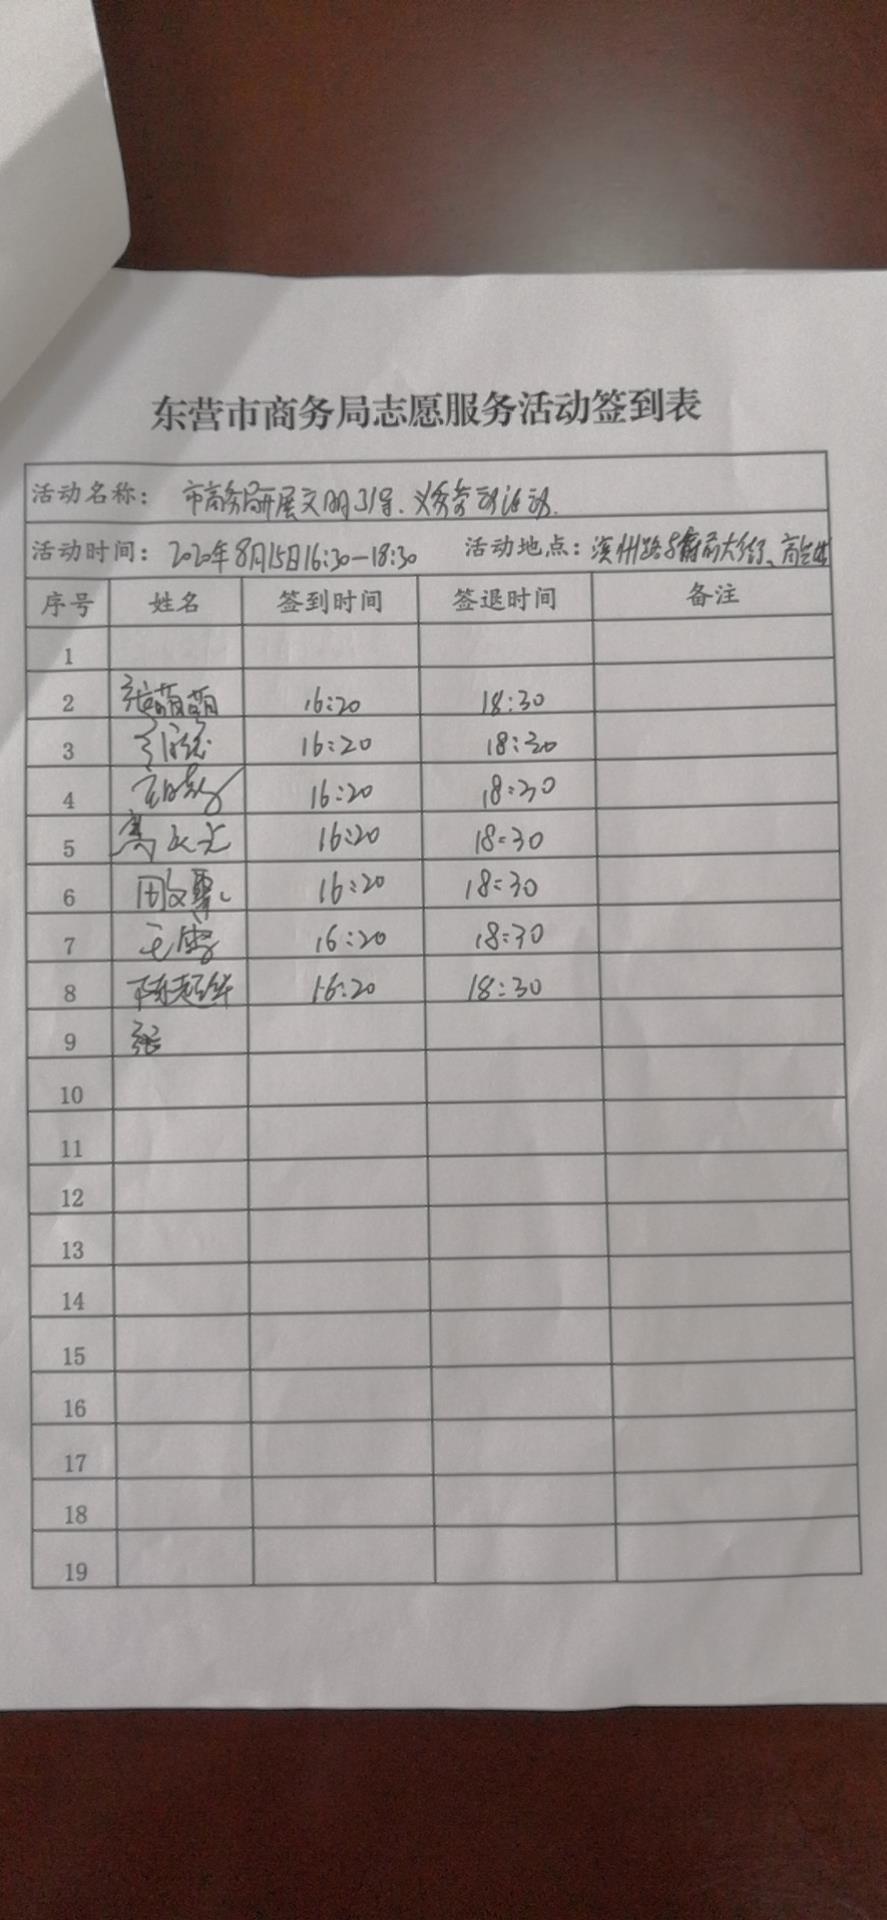 东营市商务局志愿服务活动签到表
活动名称： 市商务局开展文明引导、义务劳动活动.
活动时间： 2020年8月15日16:30—18:30 活动地点： 滨州路与府前大街、
序号 姓名 签到时间 签退时间 备注
1
2 张萌萌 16:20 18:30
3 16:20 18:30
4 16:20 18:30
5 16:20 18:30
6 田文 16:20 18:30
7 王雪 16:20 18:30
8 陈超华 16:20 18:30
9 张
10
11
12
13
14
15
16
17
18
19